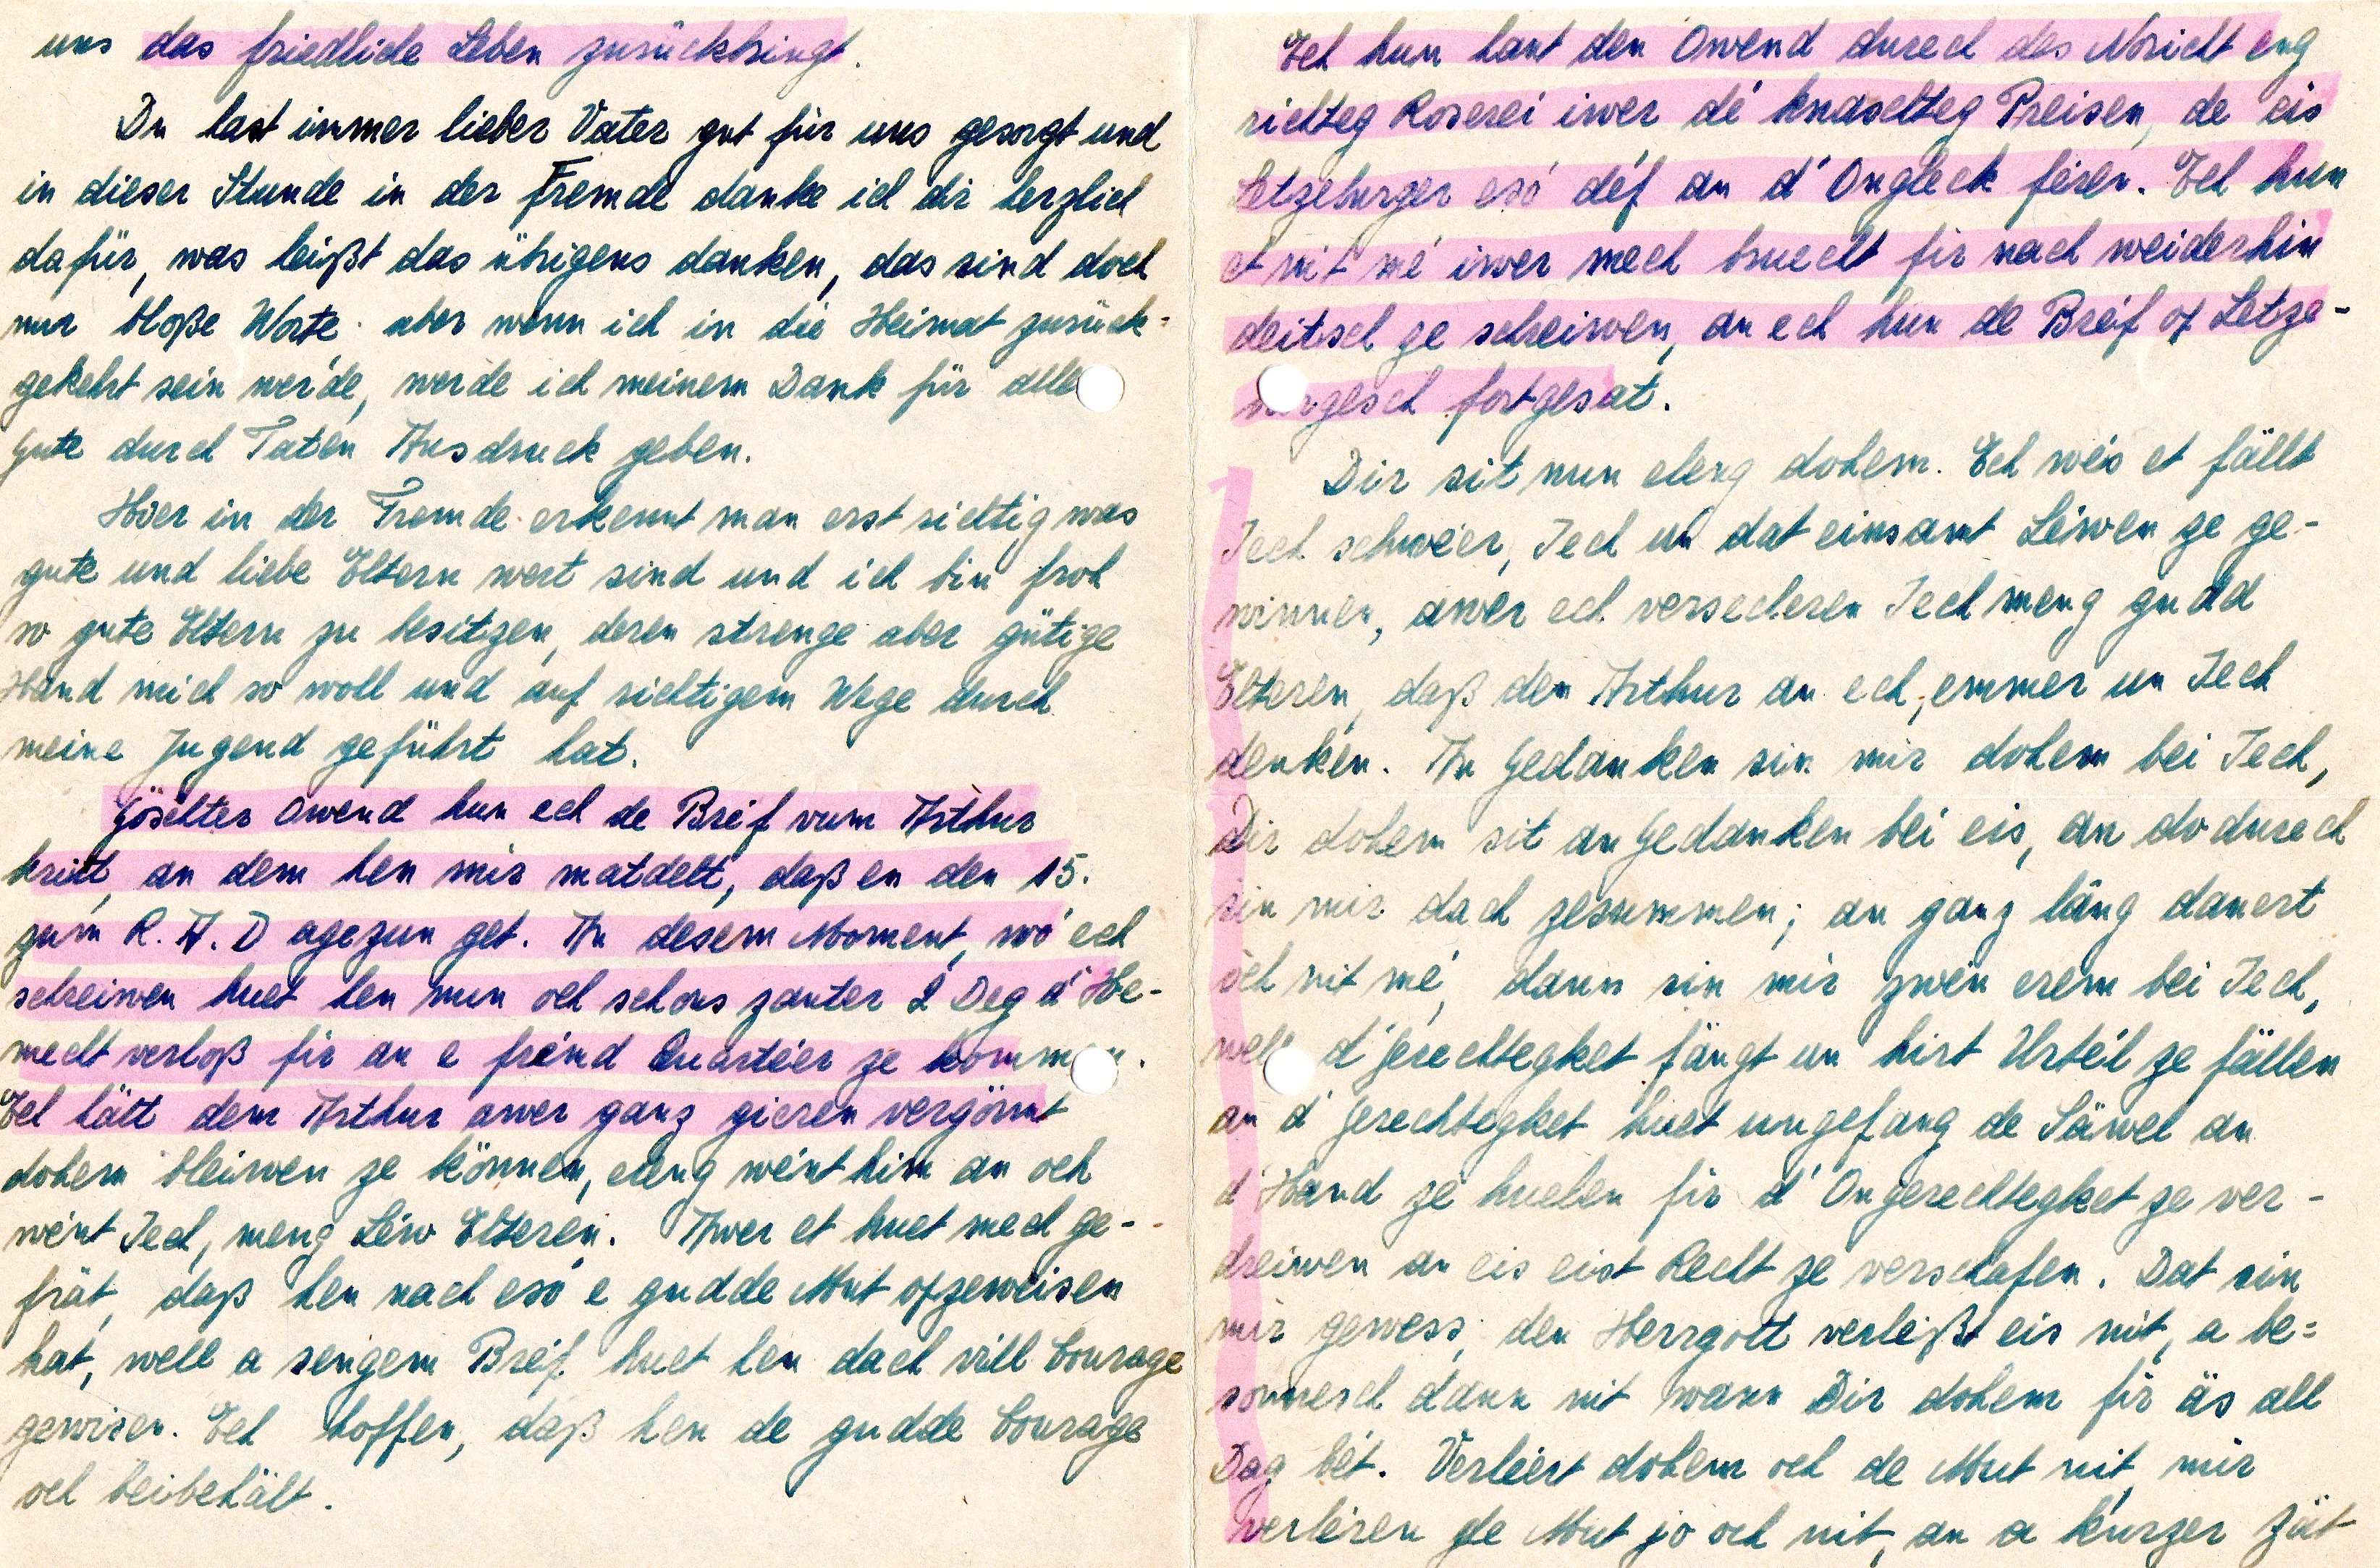 uns das friedliche Leben zurückbringt.
Du hast immer lieber Vater gut für uns gesorgt und
in dieser Stunde in der Fremde danke ich dir herzlich
dafür, was heißt das übrigens danken, das sind doch
nur bloße Worte aber wenn ich in die Heimat zurück-
gekehrt sein werde, werde ich meinem Dank für alle
Gute durch Taten Ausdruck geben.
Hier in der Fremde erkennt man erst richtig was
gute und liebe Eltern wert sind und ich bin froh
so gute Eltern zu besitzen, deren strenge aber gütige
Hand mich so woll und auf richtigem Wege durch
meine Jugend geführt hat.
Göschter Owend hun ech de Bréf vum Arthur
kritt, an dem hen mir matdelt, daß en den 15.
zum R.A.D agezun get. An desem Moment, wó ech
schreiwen huet hen nun och schons zanter 2 Deg d'He-
mecht verloß fir an e frémd Quartéer ze kommen.
Ech hätt dem Arthur awer ganz gieren vergönnt
dohem bleiwen ze können, eleng wéint him an och
wéint Iech, meng Léiw Elteren. Awer et huet mech ge-
frät, daß hen nach esó e gudde Mut opzeweisen
hat, well a sengem Bréf huet hen dach vill Courage
gewisen. Ech hoffen, daß hen de gudde Courage
och beibehält.
Ech hun haut den Owend durech des Noricht eng
richteg Roserei iwer dé knaschteg Preisen, de eis
Letzeburger esó déf an d'Ongleck féren. Ech hun
et nit mé iwer mech bruecht fir nach weiderhin
deitsch ze schreiwen, an ech hun de Bréif op Letze-
burgesch fortgesat.
Dir sit nun eleng dohem. Ech wés et fällt
Iech schwéer, Iech un dat einsamt Léiwen ze ge-
winnen, awer ech versecheren Iech meng gudd
Elteren, daß den Arthur an ech, emmer un Iech
denken. An Gedanken sin mir dohem bei Iech,
Dir dohem sit an Gedanken bei eis, an dodurech
sin mir dach zesummen; an ganz läng dauert
och nit mé, dann sin mir zwén erem bei Iech,
well d'Gerechtegket fängt un hirt Urtéil ze fällen
an d'Gerechtegket huet ungefang de Säwel an
d'Hand ze huelen fir d'Ongerechtegket ze ver-
dreiwen an eis eist Recht ze verschafen. Dat sin
mir gewess, den Herrgott verleißt eis nit, a be-
sonnesch dann nit wann Dir dohem fir äs all
Dag bét. Verléert dohem och de Mut nit, mir
verléren de Mut jo och nit, an a kurzer Zät